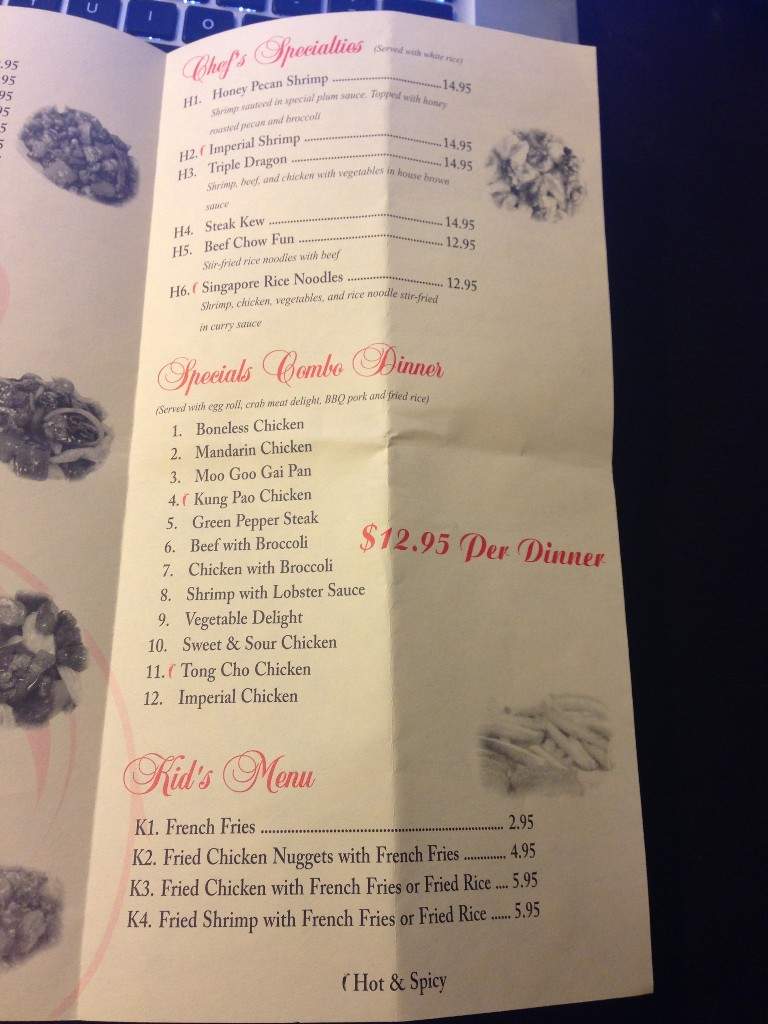 T U I O
.95
95
95
5
5
Chef's Specialties (Served with white rice)
H1. Honey Pecan Shrimp ........................................ 14.95
Shrimp sauteed in special plum sauce. Topped with honey
roasted pecan and broccoli
H2. Imperial Shrimp ........................................ 14.95
H3. Triple Dragon ........................................ 14.95
Shrimp, beef, and chicken with vegetables in house brown
sauce
H4. Steak Kew ........................................ 14.95
H5. Beef Chow Fun ........................................ 12.95
Stir-fried rice noodles with beef
H6. Singapore Rice Noodles ........................... 12.95
Shrimp, chicken, vegetables, and rice noodle stir-fried
in curry sauce
Specials Combo Dinner
(Served with egg roll, crab meat delight, BBQ pork and fried rice)
1. Boneless Chicken
2. Mandarin Chicken
3. Moo Goo Gai Pan
4. Kung Pao Chicken
5. Green Pepper Steak
6. Beef with Broccoli
7. Chicken with Broccoli
8. Shrimp with Lobster Sauce
9. Vegetable Delight
10. Sweet & Sour Chicken
11. Tong Cho Chicken
12. Imperial Chicken
$12.95 Per Dinner
Kid's Menu
K1. French Fries ................................................................ 2.95
K2. Fried Chicken Nuggets with French Fries ............. 4.95
K3. Fried Chicken with French Fries or Fried Rice .... 5.95
K4. Fried Shrimp with French Fries or Fried Rice ...... 5.95
Hot & Spicy